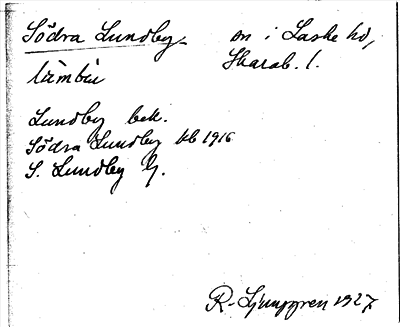 Södra Lundby on i Laske hd,
Skarab. l.
lùmbù
Lundby bek.
Södra Lundby kb 1916
S. Lundby G.
R. Ljunggren 1927